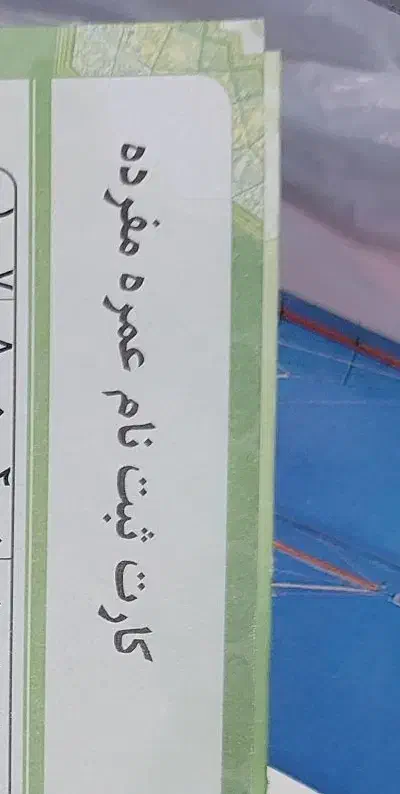 کارت ثبت نام عمره مفرده